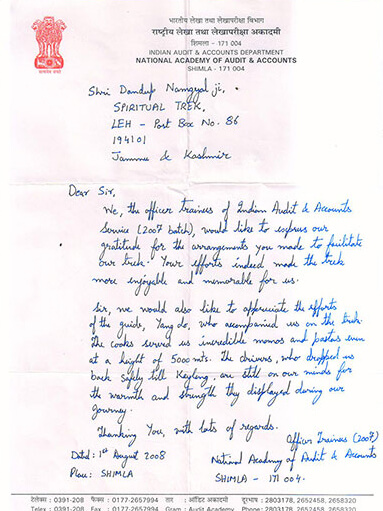 भारतीय लेखा तथा लेखापरीक्षा विभाग
राष्ट्रीय लेखा तथा लेखापरीक्षा अकादमी
शिमला - 171 004
INDIAN AUDIT & ACCOUNTS DEPARTMENT
NATIONAL ACADEMY OF AUDIT & ACCOUNTS
SHIMLA - 171 004
Shri Dandup Namgyal ji,
SPIRITUAL TREK,
LEH - Post Box No. 86
194101
Jammu & Kashmir
Dear Sir,
We, the officer trainees of Indian Audit & Accounts
Service (2007 batch), would like to express our
gratitude for the arrangements you made to facilitate
our trek. Your efforts indeed made the trek
more enjoyable and memorable for us.
Sir, we would also like to appreciate the efforts
of the guide, Yang do, who accompanied us on the trek.
The cooks served us incredible momos and pastas even
at a height of 5000 mts. The drivers, who dropped us
back safely till Keylong, are still on our minds for
the warmth and strength they displayed during our
journey.
Thanking You, with lots of regards.
Officer Trainees (2007)
Datd: 1st August 2008
National Academy of Audit & Accounts
Place: SHIMLA
SHIMLA - 171 004.
टेलेक्स : 0391-208 फैक्स : 0177-2657994 तार : ऑडिट अकादमी दूरभाष : 2803178, 2652458, 2658320
Telex : 0391-208 Fax : 0177-2657994 Gram : Audit Academy Phone : 2803178, 2652458, 2658320